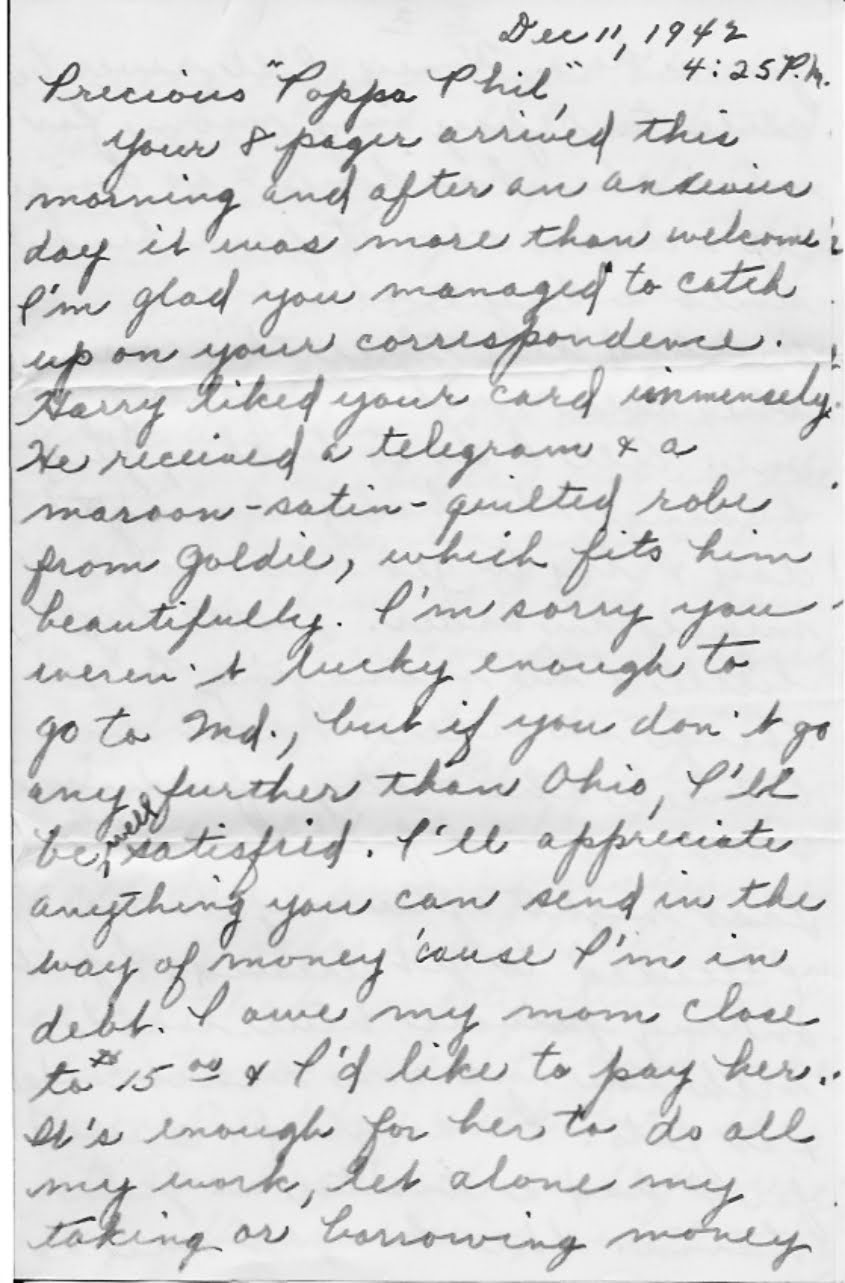 Dec 11, 1942
4:25 P.M.
Precious "Poppa Phil",
Your 8 pager arrived this
morning and after an anxious
day it was more than welcome.
I'm glad you managed to catch
up on your correspondence.
Harry liked your card immensely.
He received a telegram & a
maroon-satin-quilted robe
from Goldie, which fits him
beautifully. I'm sorry you
weren't lucky enough to
go to Md., but if you don't go
any further than Ohio, I'll
be well satisfied. I'll appreciate
anything you can send in the
way of money 'cause I'm in
debt. I owe my mom close
to $15.00 & I'd like to pay her.
It's enough for her to do all
my work, let alone my
taking or borrowing money